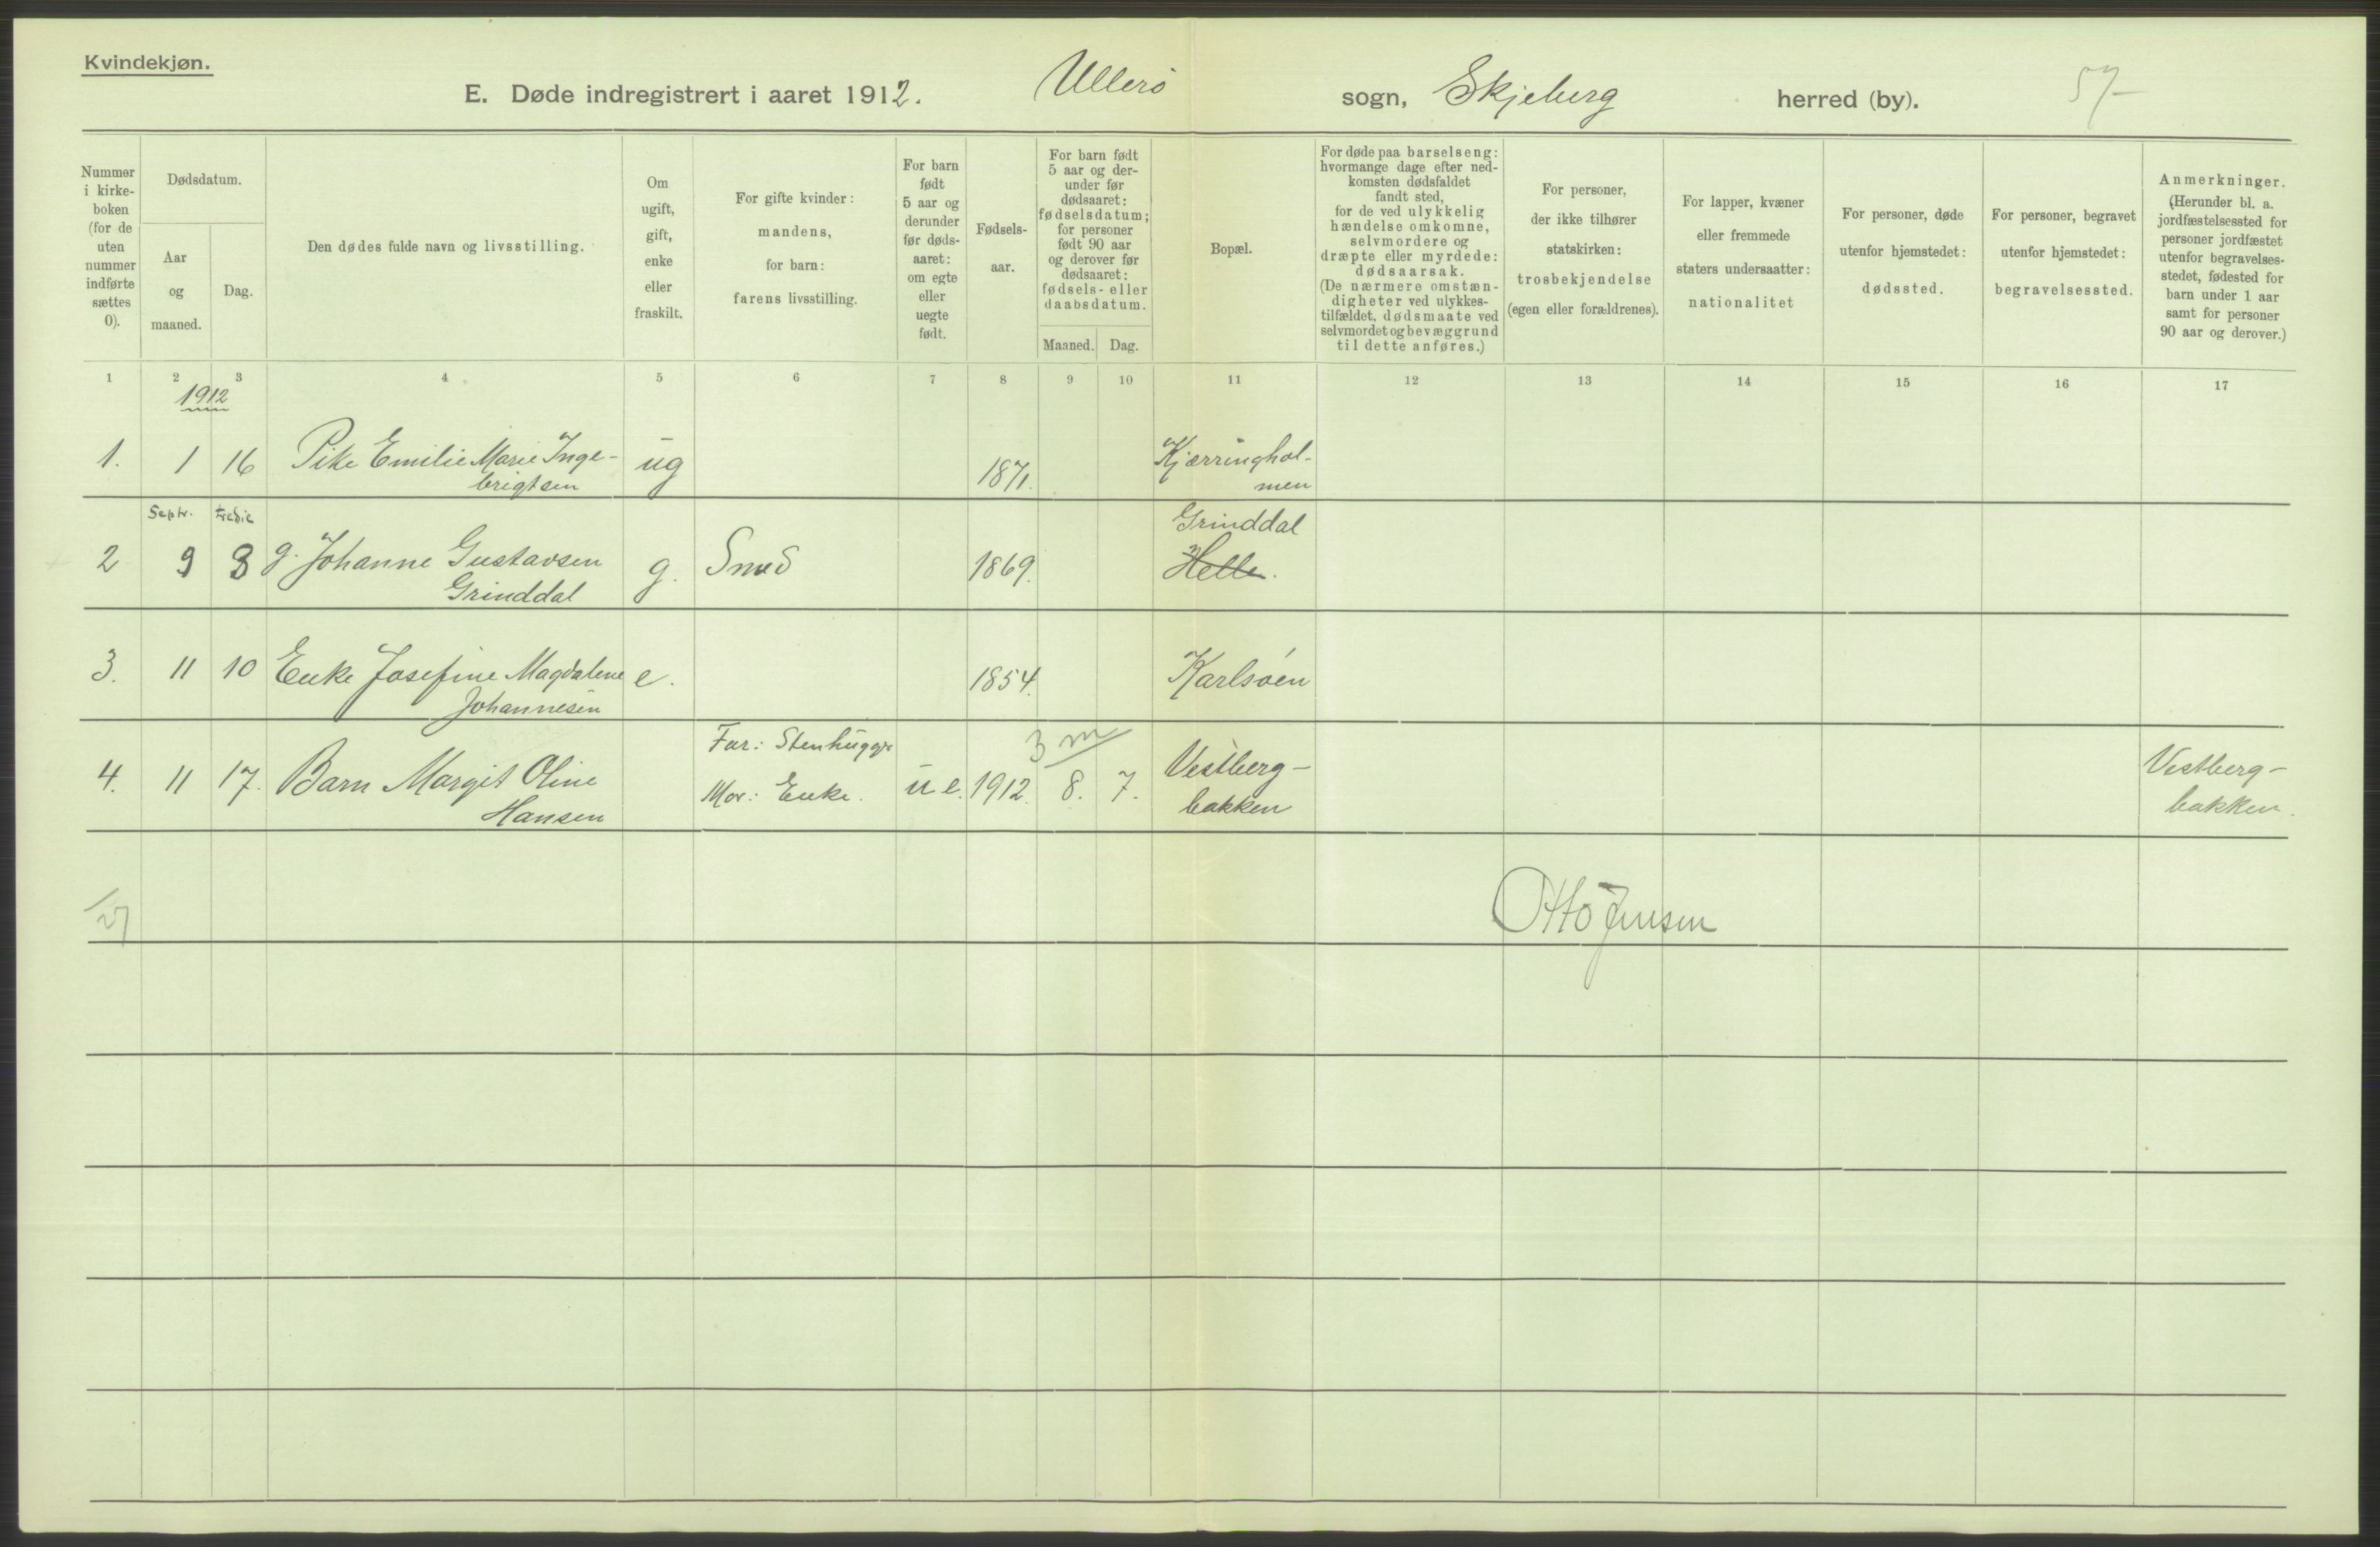 Kvindekjøn.
E. Døde indregistrert i aaret 1912. Ullerö sogn, Skjeberg herred (by). 57
Nummer i kirke- boken (for de uten nummer indførte sættes 0).
Dødsdatum.
Aar og maaned.
Dag.
Den dødes fulde navn og livsstilling.
Om ugift, gift, enke eller fraskilt.
For gifte kvinder: mandens, for barn: farens livsstilling.
For barn født 5 aar og derunder før døds- aaret: om egte eller uegte født.
Fødsels- aar.
For barn født 5 aar og der- under før dødsaaret: fødselsdatum; for personer født 90 aar og derover før dødsaaret: fødsels- eller daabsdatum.
Maaned. Dag.
Bopæl.
For døde paa barselseng: hvormange dage efter ned- komsten dødsfaldet fandt sted, for de ved ulykkelig hændelse omkomne, selvmordere og dræpte eller myrdede: dødsaarsak. (De nærmere omstæn- digheter ved ulykkes- tilfældet, dødsmaate ved selvmordet og bevæggrund til dette anføres.)
For personer, der ikke tilhører statskirken: trosbekjendelse (egen eller forældrenes).
For lapper, kvæner eller fremmede staters undersaatter: nationalitet
For personer, døde utenfor hjemstedet: dødssted.
For personer, begravet utenfor hjemstedet: begravelsessted.
Anmerkninger. (Herunder bl. a. jordfæstelsessted for personer jordfæstet utenfor begravelses- stedet, fødested for barn under 1 aar samt for personer 90 aar og derover.)
1 2 3 4 5 6 7 8 9 10 11 12 13 14 15 16 17
1912
1. 1 16 Pike Emilie Marie Inge- ug 1871. Kjærringhol-
brigtsen men
Septr. tredie Grinddal
2 9 3 g. Johanne Gustavsen g. Smed 1869. Helle.
Grinddal
3. 11 10 Enke Josefine Magdalene e. 1854. Karlsöen
Johannesen
Far: Stenhugger 3 m
4. 11 17. Barn Margit Oline Mor: Enke. u e. 1912. 8. 7. Vestberg- Vestberg-
Hansen bakken bakken.
Otto Jensen
27